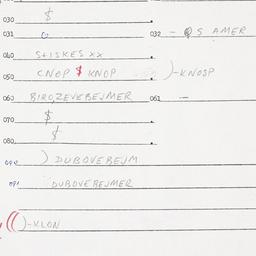 030 $
031 0 032 - QS AMER
040 STISKES XX
050 CNOP $ KNOP )-KNOSP
060 BIROZEVKEBEJMER 061 -
070 $
$
080
090 ) DUBOVEBEJM
091 DUBOVEBEJMER
(()-KLON